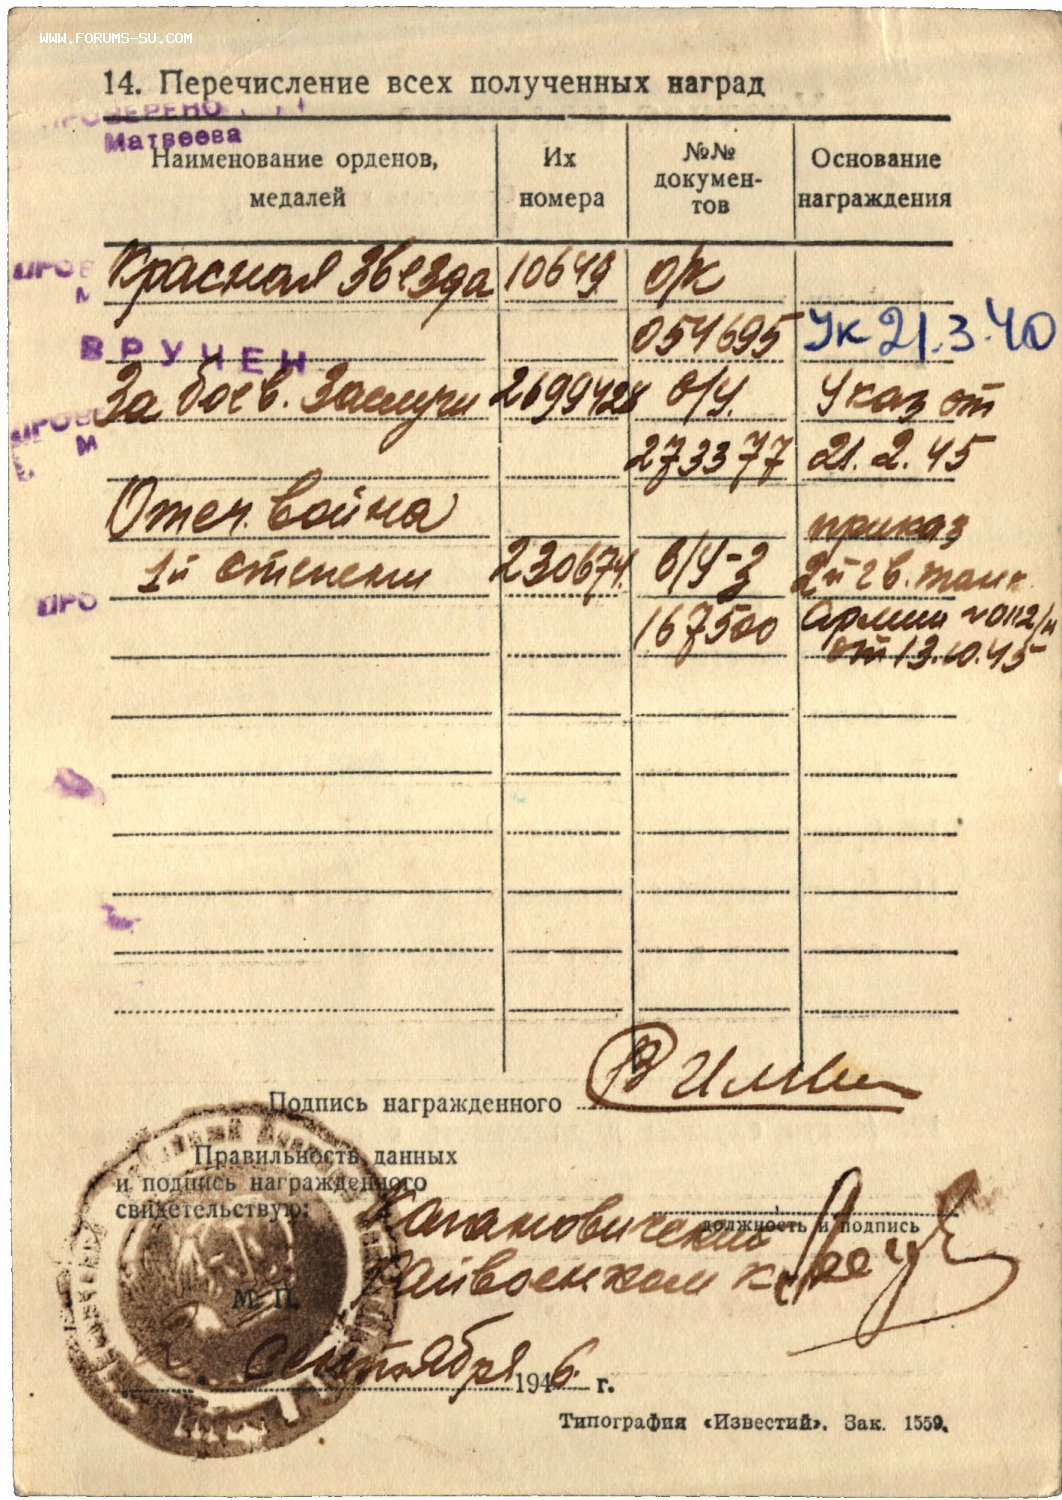 WWW.FORUMS-SU.COM
14. Перечисление всех полученных наград
ПРОВЕРЕНО
Матвеева
Наименование орденов, медалей
Их номера
№№ докумен-
тов
Основание награждения
ПРОВ
М
Красная Звезда 10649 о/к
054695 Ук 21.3.40
ВРУЧЕН
За боев. Заслуги 2699428 о/у. Указ от
ПРОВ
М
273377 21.2.45
Отеч. война приказ
1й степени 230674. в/у-з 2й гв. танк.
ПРО
167500 Армии №0112/н
от 13.10.45
Подпись награжденного
Правильность данных
и подпись награжденного
свидетельствую:
Кагановический
должность и подпись
Райвоенком
М. П.
2 сентября 1946 г.
Типография «Известий». Зак. 1559.